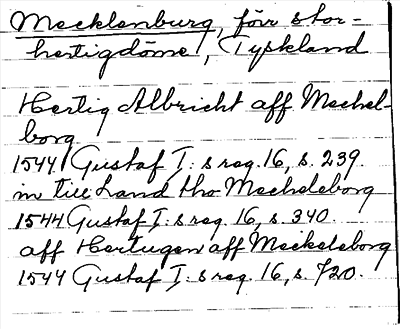 Mecklenburg, förr stor-
hertigdöme, Tyskland
Hertig Albricht aff Mechel-
borg
1544 Gustaf I:s reg. 16, s. 239.
in till Land tho Mechelborg
1544 Gustaf I:s reg. 16, s. 340
aff Hertugen aff Meckelborg
1544 Gustaf I:s reg. 16, s. 720.